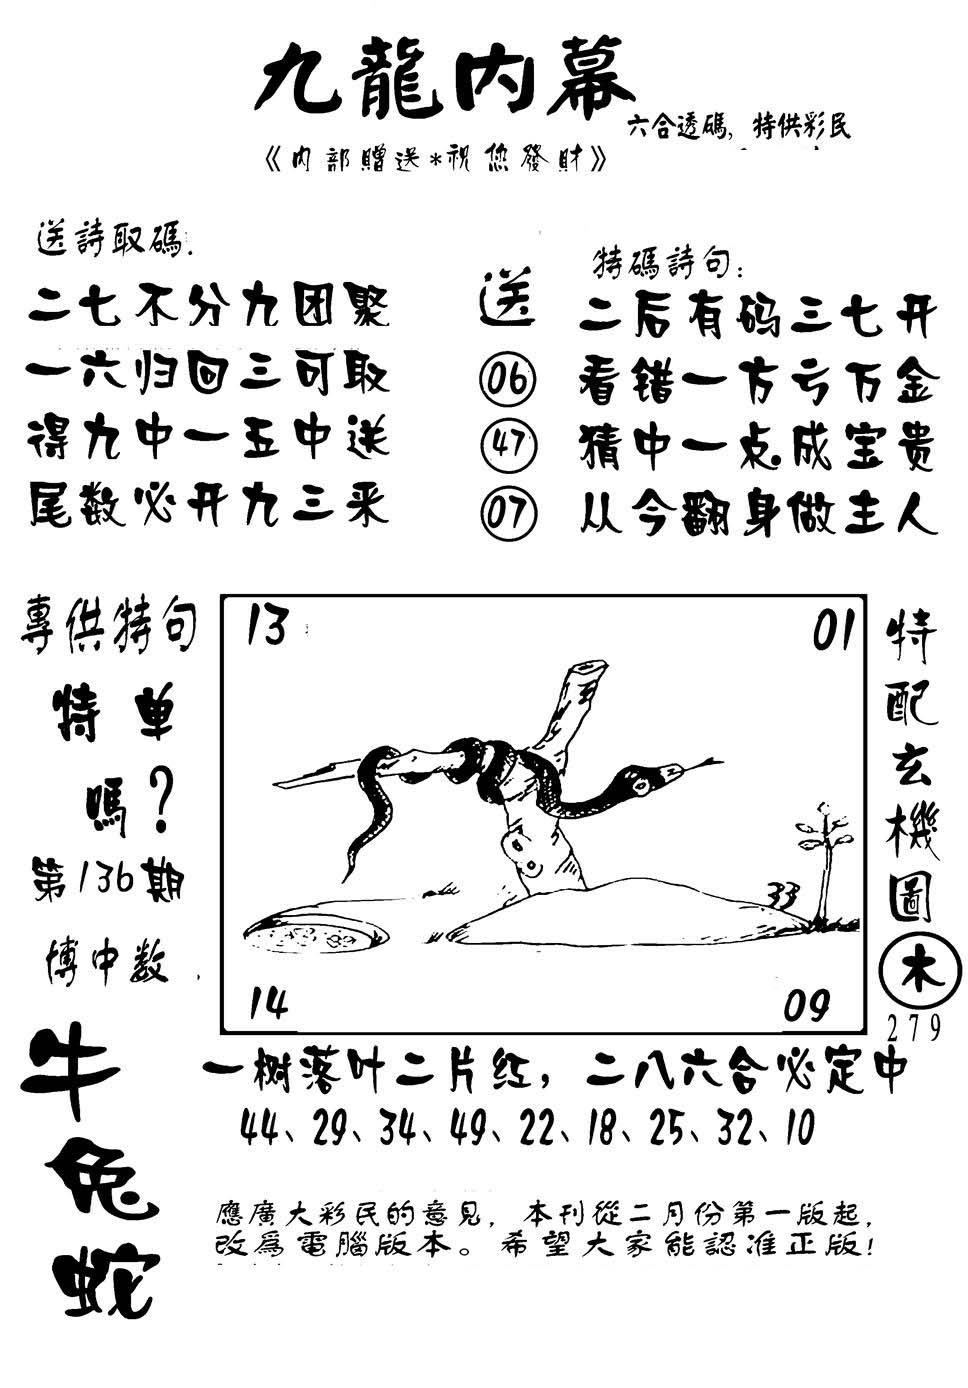 九龍内幕
六合透碼，特供彩民
《内部贈送*祝您發財》
送詩取碼:
二七不分九团聚
一六归回三可取
得九中一五中送
尾数必开九三来
送
06
47
07
特碼詩句:
二后有码三七开
看错一方亏万金
猜中一点成宝贵
从今翻身做主人
專供特句
特單
嗎?
第136期
博中数
牛
兔
蛇
13
01
33
14
09
特配玄機圖
木
279
一树落叶二片红，二八六合必定中
44、29、34、49、22、18、25、32、10
應廣大彩民的意見，本刊從二月份第一版起，
改爲電腦版本。希望大家能認准正版！